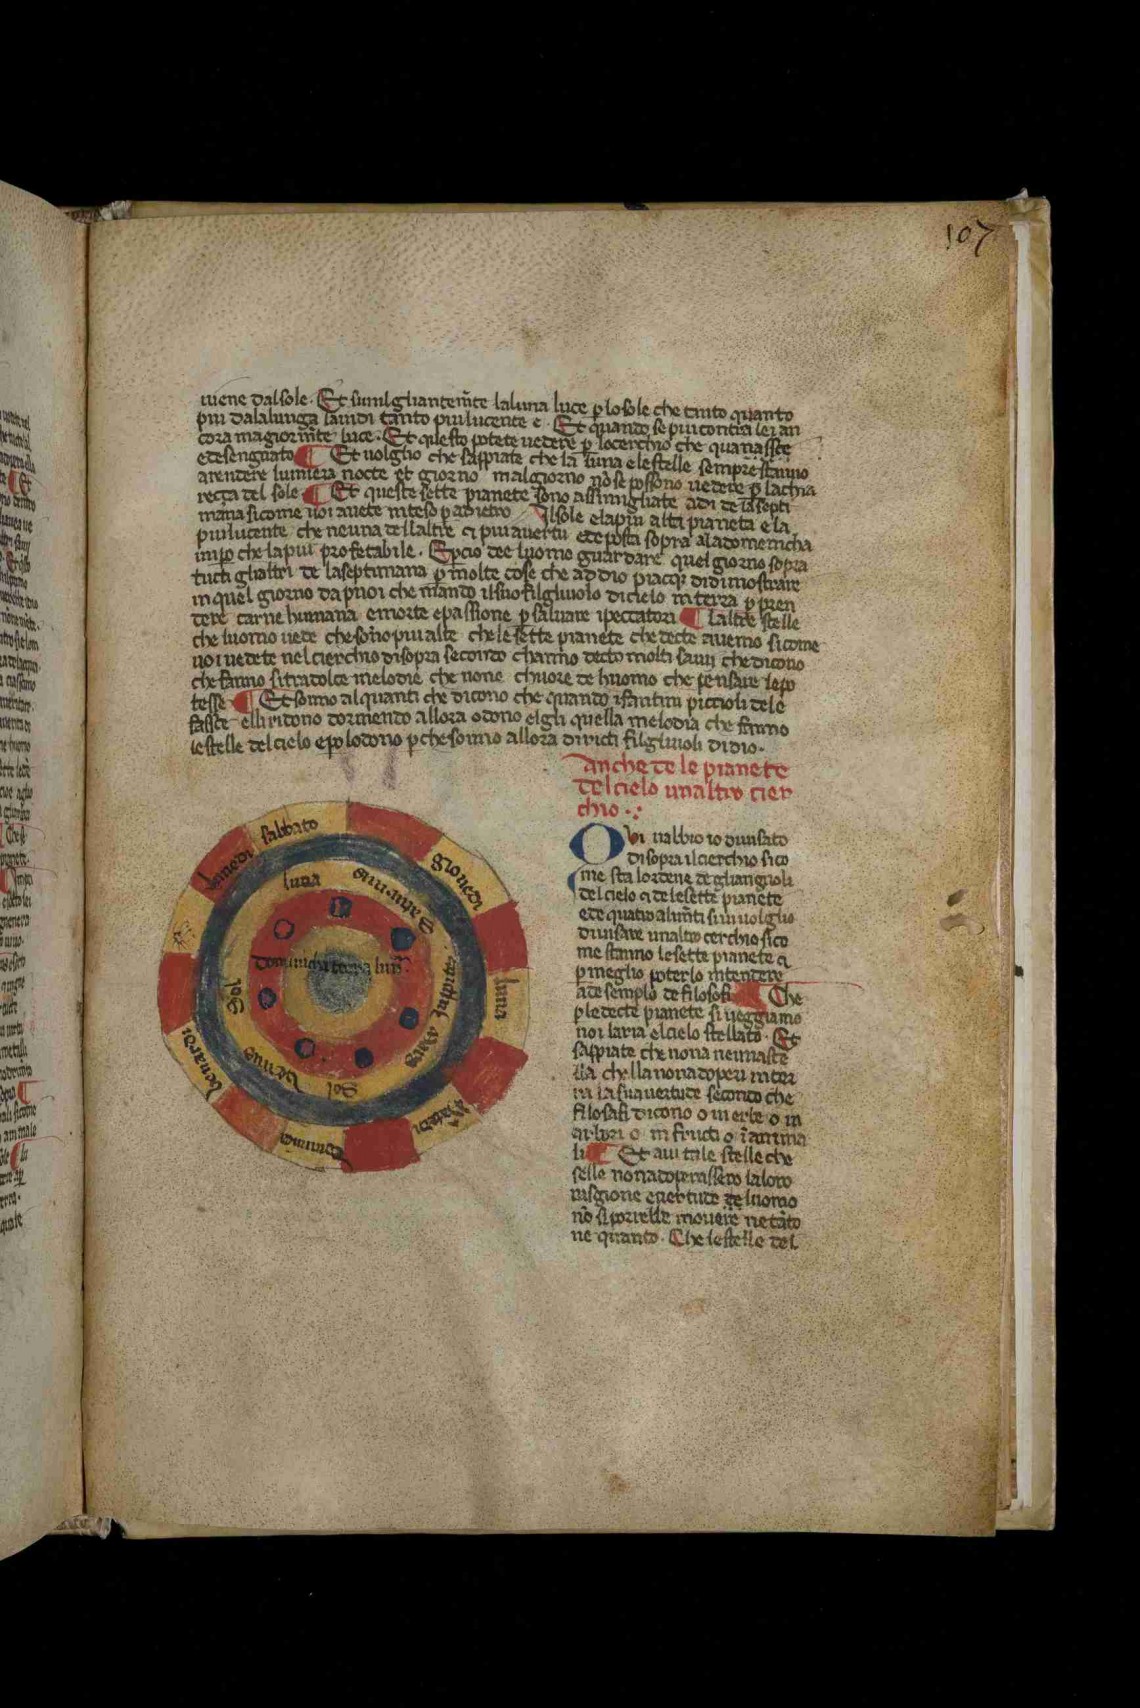 107
uiene dalsole. Et similgliantem̃te laluna luce p̲ losole che tanto quanto
piu dalalunga laiudi tanto piulucente e. Et quando se piu contra lei an
cora magiorm̃te luce. Et questo potete uedere p̲ locerchio che quanassce
edesengnato ¶ Et uolglio che sappiate che la luna elestelle sempre stanno
arendere lumiera nocte et giorno malgiorno nõ se possono uedere p̲ lachia
reçça del sole ¶ Et queste sette pianete sono assimigliate adi delasepti
mana sicome uoi auete inteso p̲ adietro Ilsole elapiu alta pianeta ela
piulucente che neuna dellaltre ci piu auertu ede posta sopra aladomenicha
imp̲o che lapiu profetabile. Ep̲cio dee luomo guardare quel giorno sopra
tucti glialtri de laseptimana p̲ molte cose che addio piacq; didimostrare
in quel giorno dapnoi che mando ilsuo filgliuolo dicielo interra p̲ pren
dere carne humana emorte epassione p̲ saluare ipeccatori ¶ Laltre stelle
che luomo uede che sono piu alte che le sette pianete che decte auemo sicome
uoi uedete nel cierchio disopra secondo channo decto molti saui che dicono
che fanno sitradolce melodie che none chuore de huomo che pensare lepo
tesse ¶ Et sonno alquanti che dicono che quando ifantini piccioli dele
fascie elli ridono dormendo allora odono elgli quella melodia che fanno
lestelle del cielo ep̲o lodono p̲che sonno allora diricti filgliuoli didio.
anche de le pianete
del cielo unaltro cier
chio
Oui uabbio io diuisato
disopra ilcierchio sico
me sta lordene degliangioli
del cielo ci delesette pianete
ede quatro alim̃ti si uiuolglio
diuisare unaltro cerchio sico
me stanno lesette pianete ci
p̲ meglio poterlo intendere
ade semplo de filosofi ¶ Che
p̲ le decte pianete si ueggiamo
noi laria elcielo stellato. Et
sappiate che nona neuna ste
lla che lla nonadoperi inter
ra lasua uertude secondo che
filosafi dicono o in erbe o in
arbori o in fructi o ĩ anima
li ¶ Et aui tale stelle che
selle nonadoperassero laloro
rasgione euertude de luomo
nõ si porrebbe mouere ne tãto
ne quanto. Che le stelle del
sabbato
giouedi
luna
domincha
uenardi
lunedi
luna
Saturnus
Iuppiter
Mars
Sol
Venus
Sol
domincha terra